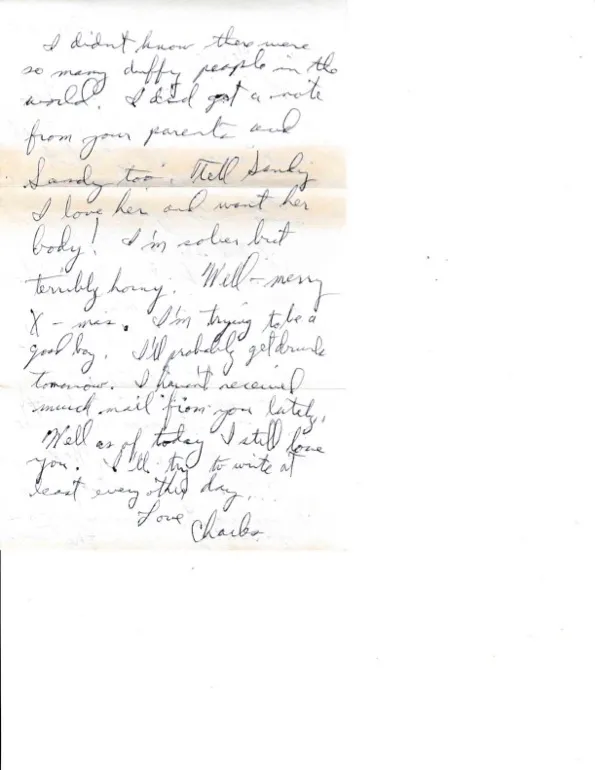 I didn't know there were
so many duffy people in the
world. I did get a note
from your parents and
Sandy too. Tell Sandy
I love her and want her
body! I'm sober but
terribly horny. Well - merry
X - mas. I'm trying to be a
good boy. I'll probably get drunk
tomorrow. I haven't received
much mail from you lately.
Well as of today I still love
you. I'll try to write at
least every other day.
Love
Charles.